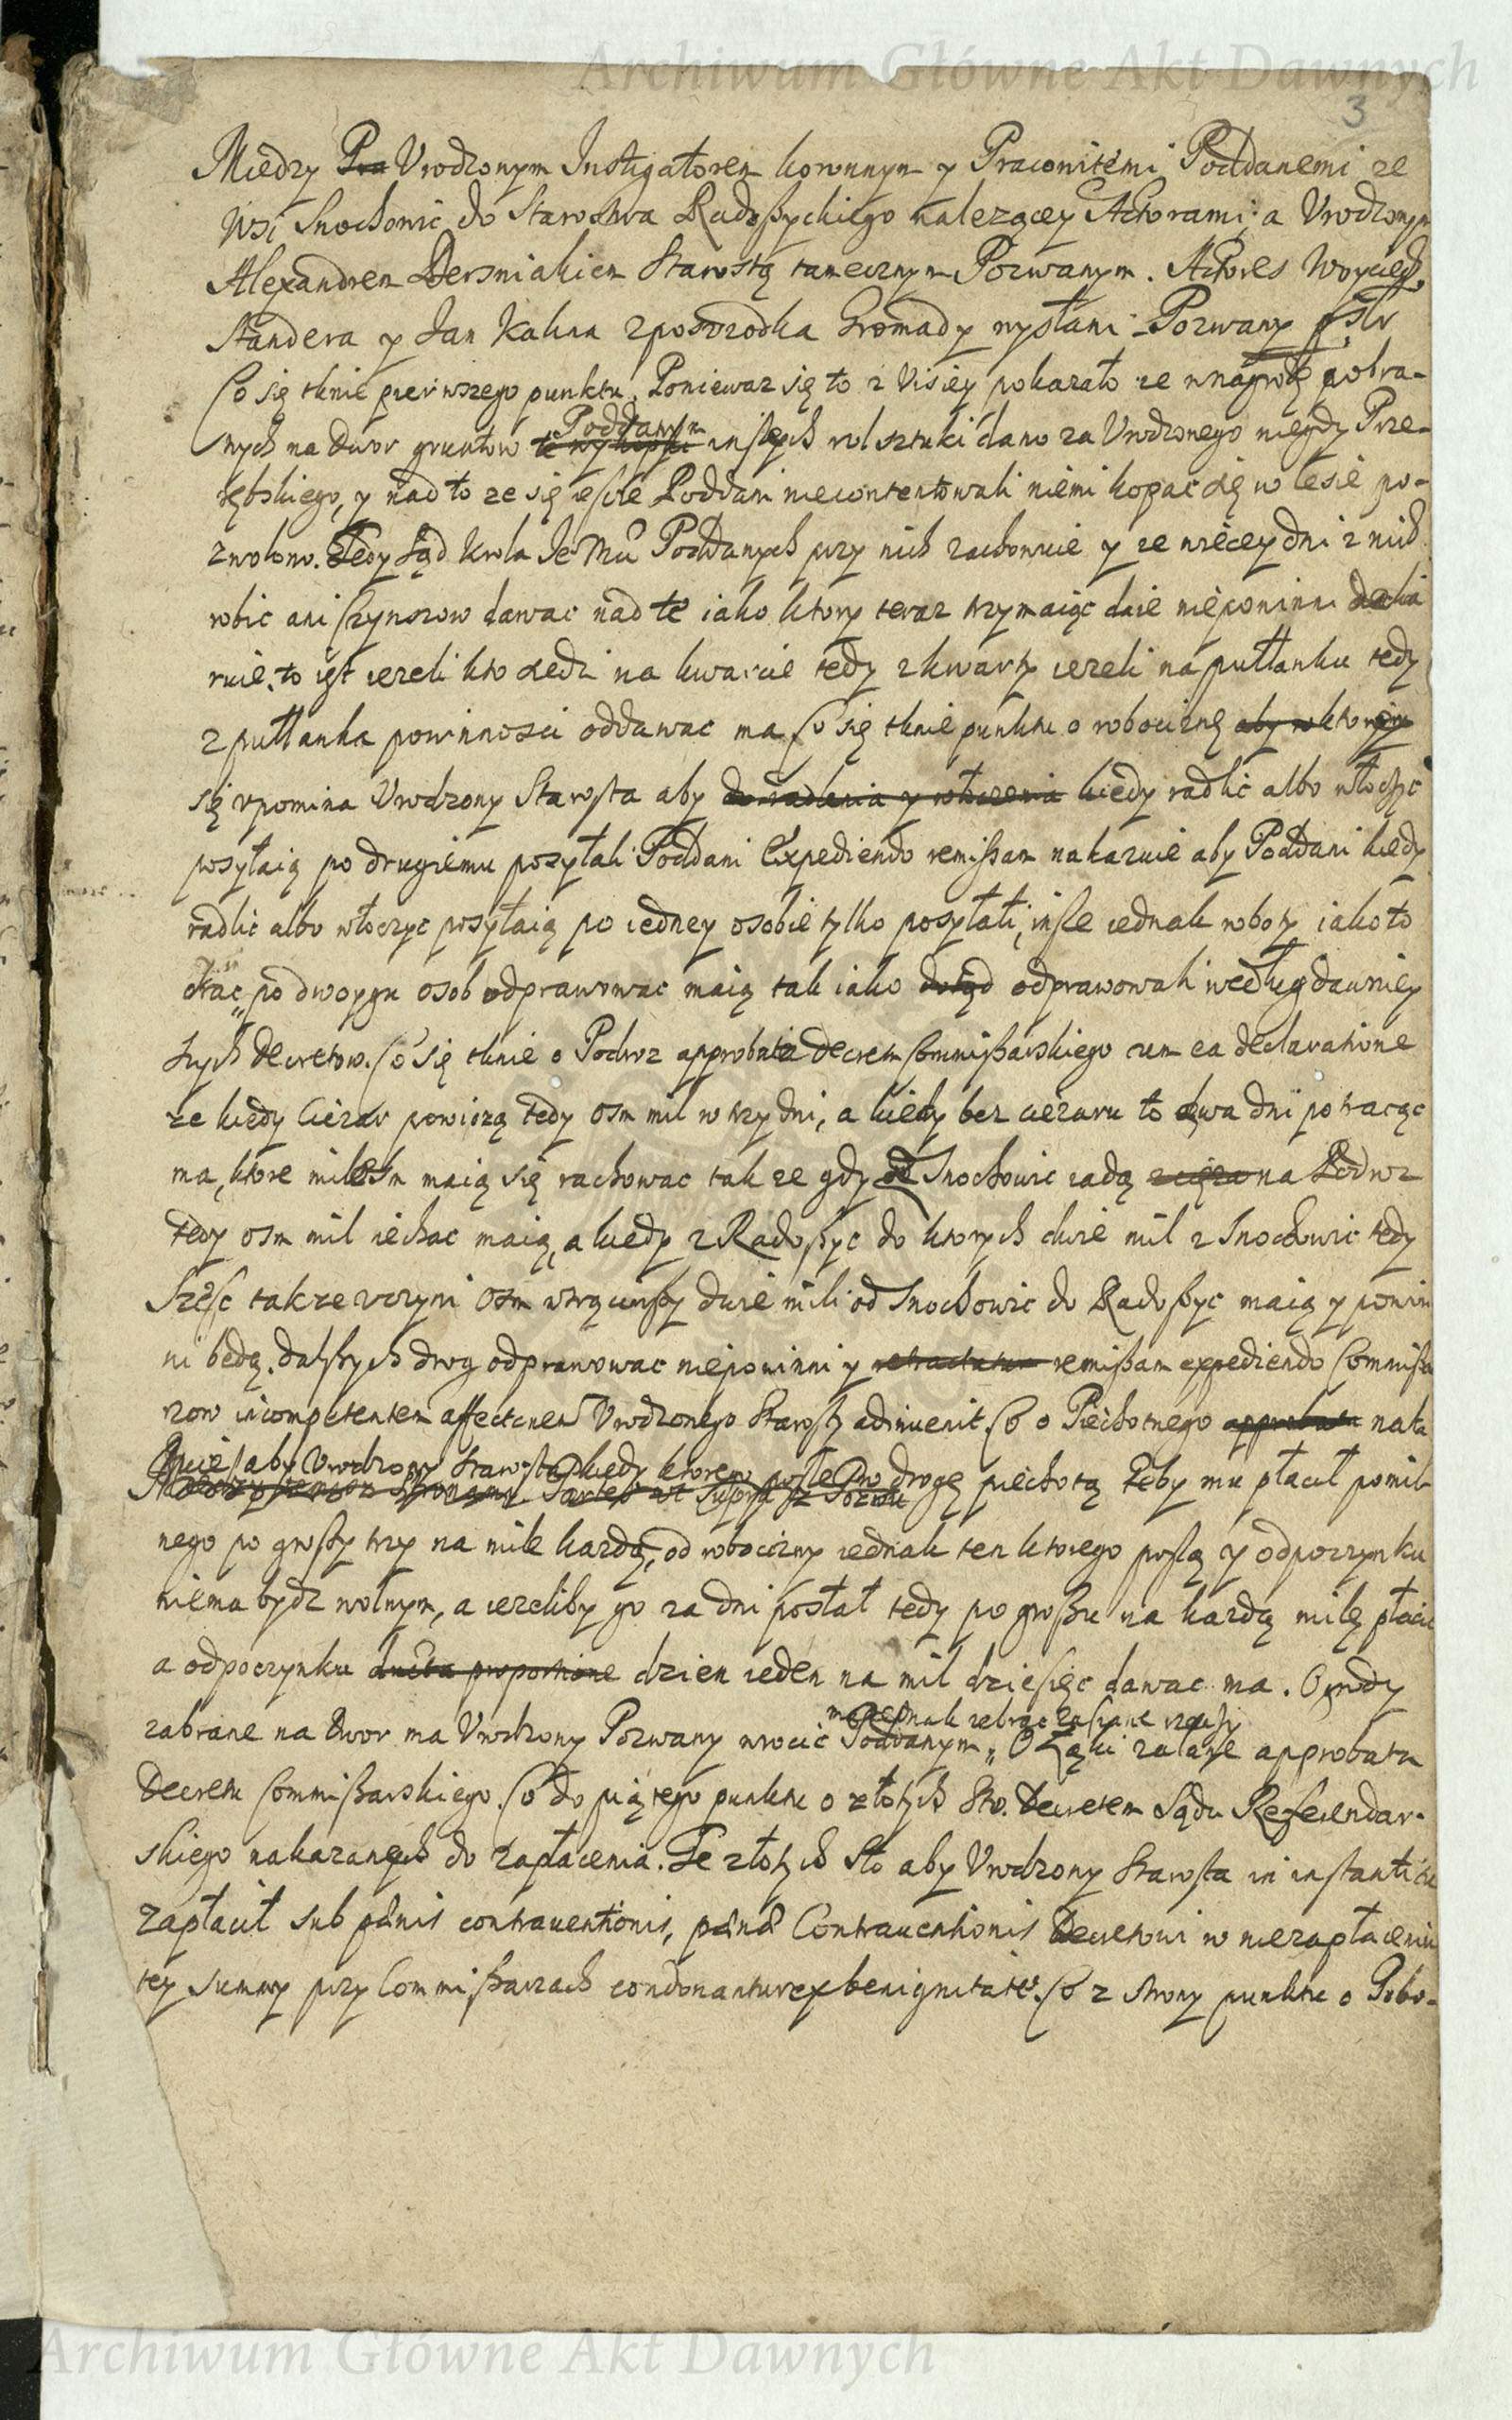 Archiwum Główne Akt Dawnych
3
Miedzy Pra Vrodzonym Instigatorem koronnym y Pracowitemi Poddanemi ze
Wsi Snochowic do Starostwa Radoszyckiego nalezącey Actorami; a Vrodzonym
Alexandrem Dersniakiem Starostą tamecznym Pozwanym. Actores Woyciech
Standera y Jan Kahna zposrzodka Gromady wysłani Pozwany
Co się tknie pierwszego punktu, Poniewaz się to z Visiey pokazało ze w nagrodę pobra-
Poddanym
nych na Dwor gruntow te wykopki inszych rol sztuki dano za Vrodzonego niegdy Prze-
rębskiego, y nad to ze się iescze Poddani niecontentowali niemi kopac się w lesie po-
zwolono. Tedy Sąd Krola Je Mci Poddanych przy nich zachowuie y ze więcey dni z nich
robic ani czynszow dawac nad te iako ktory teraz trzymaiąc daie niepowinni decla
ruie, to iest iezeli kto siedzi na kwarcie tedy z kwarty iezeli na pułłanku tedy
z pułłanka powinnosci oddawac ma Co się tknie punktu o robociznę aby w ktorey
się vpomina Vrodzony Starosta aby do radlenia y włoczenia kiedy radlic albo włoczyc
posyłaią po drugiemu posyłali Poddani Expediendo remissam nakazuie aby Poddani kiedy
radlic albo włoczyc posyłaią po iedney osobie tylko posyłali, insze iednak roboty iako to
orac, po dwoygu osob odprawowac maią tak iako dotąd odprawowali według dawniey
szych Decretow. Co się tknie o Podroz approbata Decretu Commissarskiego cum ea declaratione
ze kiedy Cięzar powiozą tedy osm mil w trzy dni, a kiedy bez ciezaru to dwa dni potracac
ma, ktore mile osm maią się rachowac tak ze gdy od Snochowic iadą z cięza na Podroz
tedy osm mil iechac maią, a kiedy z Radoszyc do ktorych dwie mil z Snochowic tedy
szesc takze vczyni osm wtrąciwszy dwie mili od Snochowic do Radoszyc maią y powin
ni będą, dalszych drog odprawowac niepowinni y retractatum remissam expediendo Commissa
rzow incompetentem affectionem Vrodzonego Starosty adinuenit. Co o Piechotnego approbata naka
zuie aby Vrodzony Starosta kiedy ktorego poszle w drogę piechotą zeby mu płacił pomil-
nego po groszy trzy na mile kazdą, od robocizny iednak ten ktorego poslą y odpoczynku
niema bydz wolnym, a iezeliby go za dni posłał tedy po groszu na kazdą milę płacic
a odpoczynku ducta proportione dzien ieden na mil dziesięc dawac ma. Ogrody
ma iednak zebrac zasiane rzeczy
zabrane na Dwor ma Vrodzony Pozwany wrocic Poddanym, O Łąki zalane approbatur
Decretu Commissarskiego. Co do piątego punktu o złotych Sto. Decretem Sądu Referendar-
skiego nakazanych do zapłacenia. Te złotych sto aby Vrodzony Starosta in instanti
zapłacił sub paenis contrauentionis, paenae Contrauentionis Decretowi w niezapłaceniu
tey summy przy Commissarzach condonantur ex benignitate. Co z strony punktu o Pobo-
Archiwum Główne Akt Dawnych